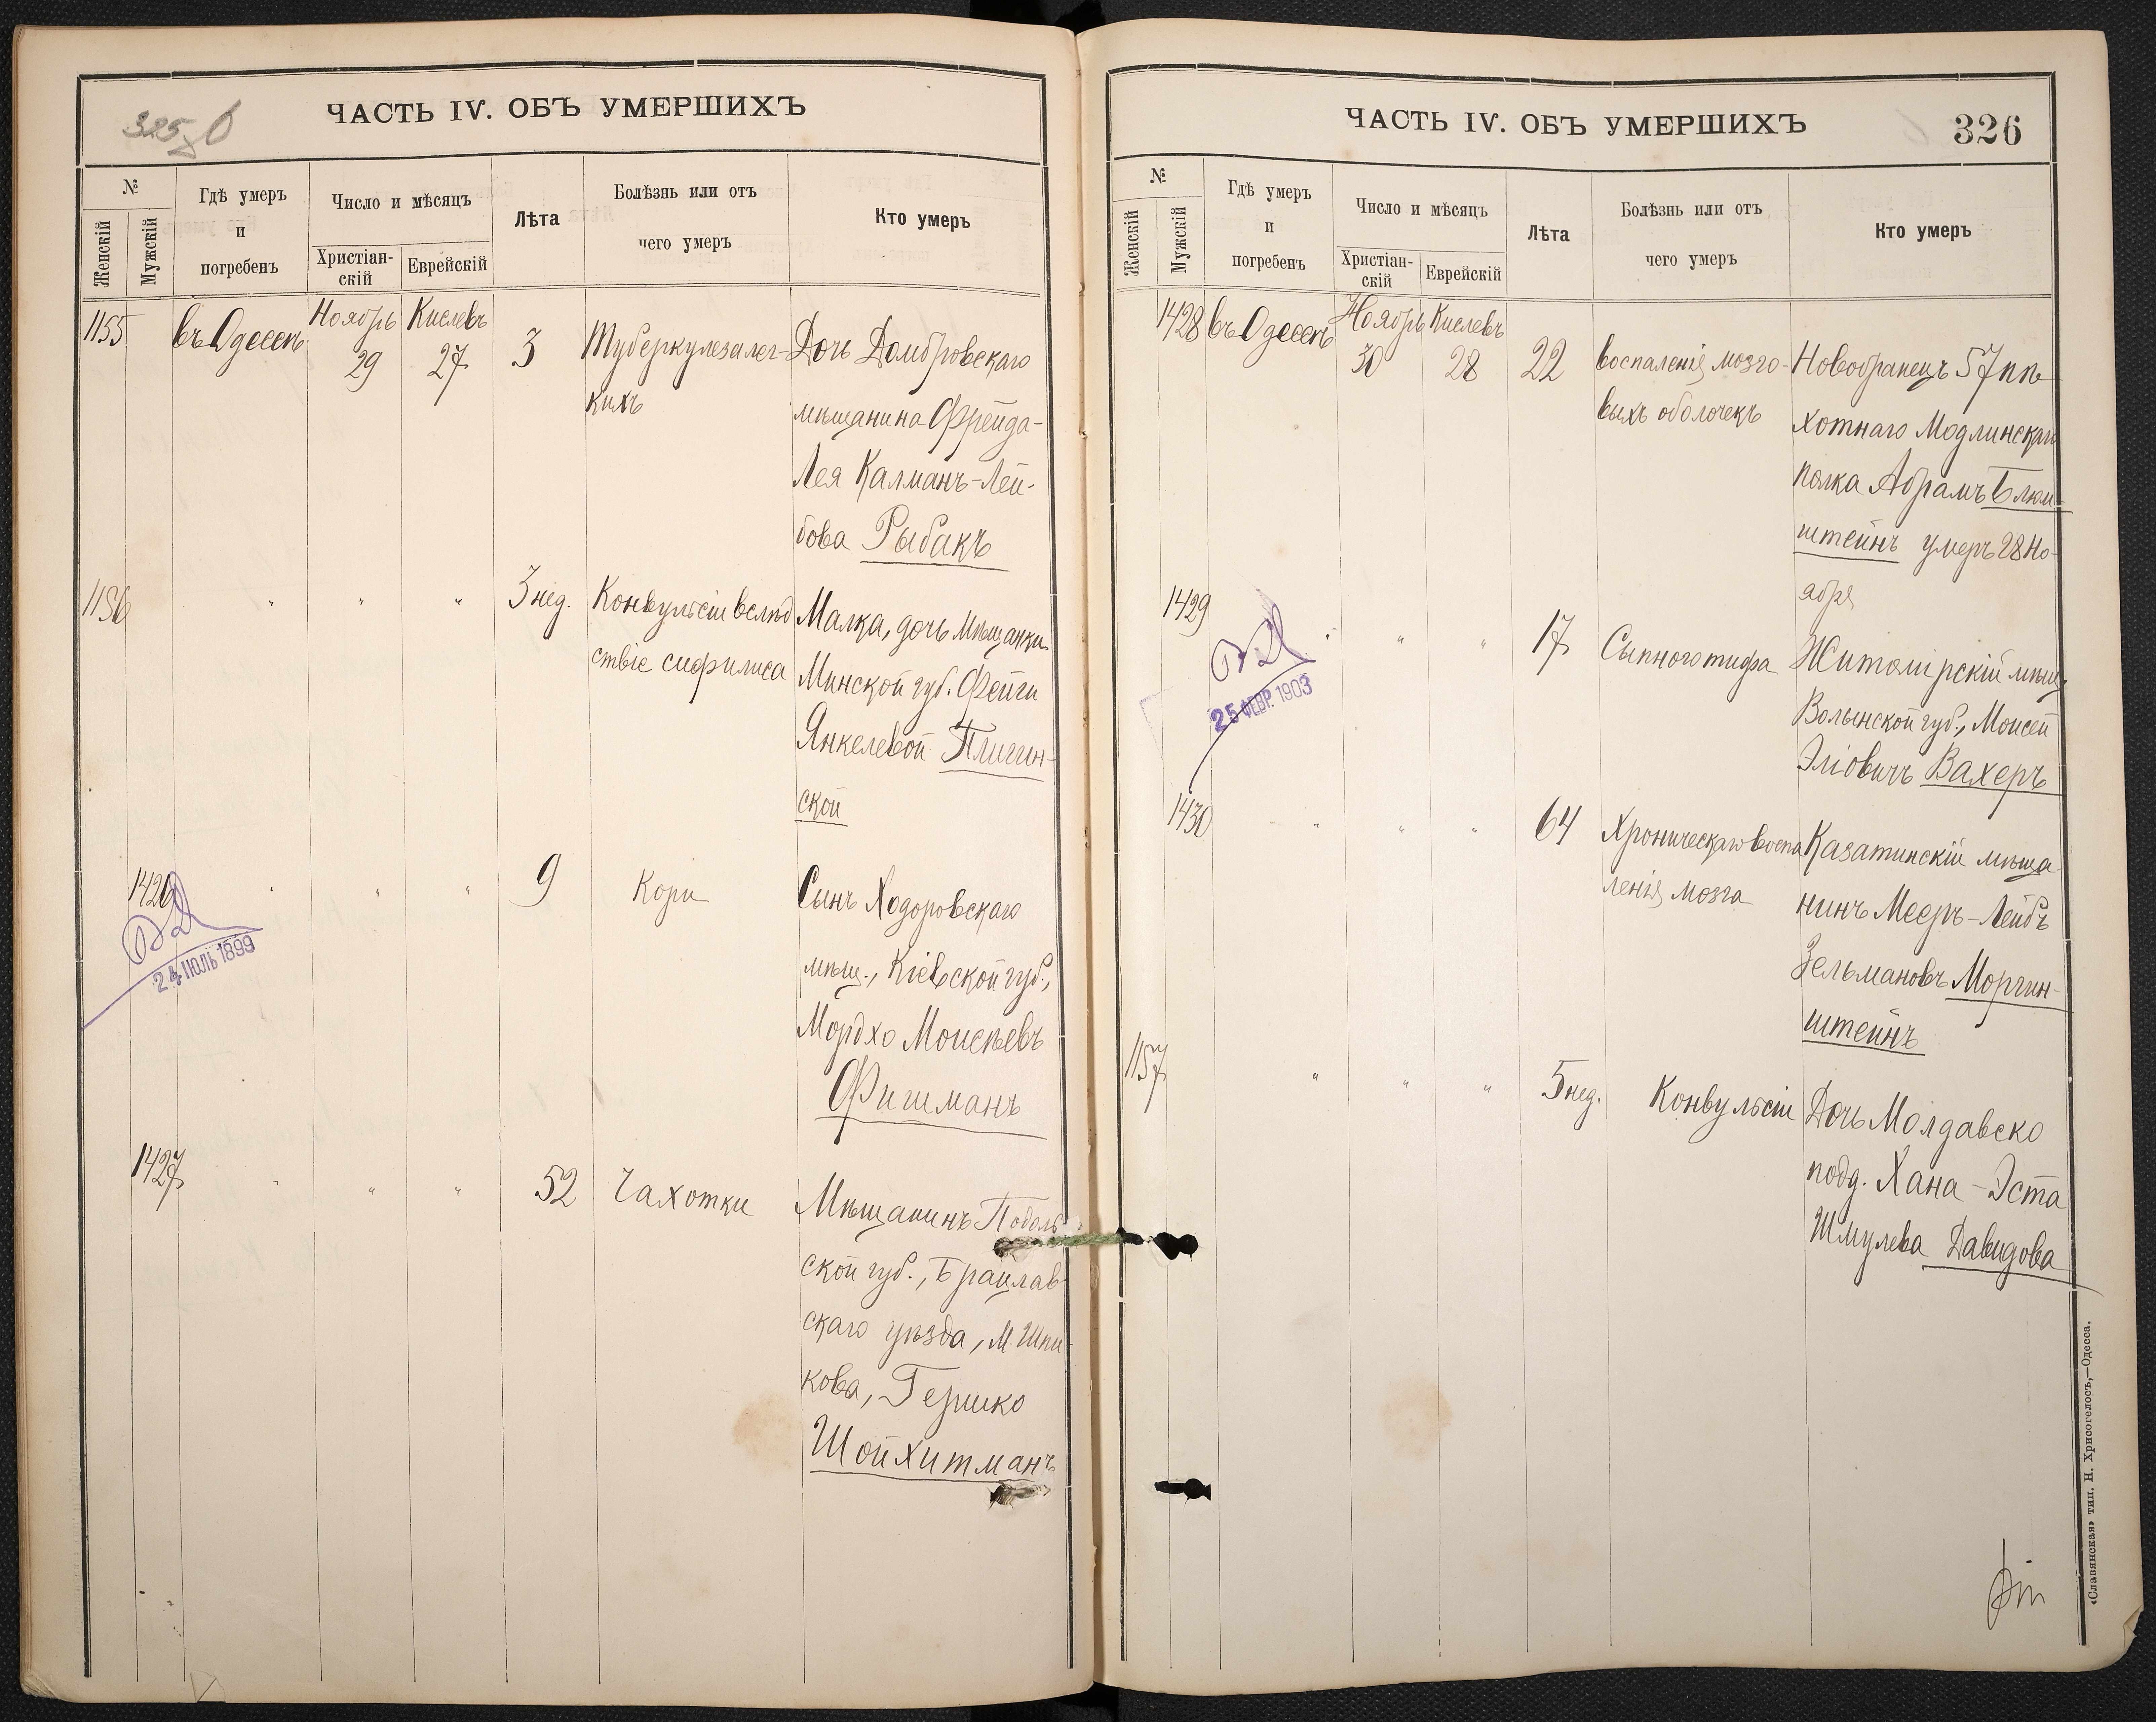 325 б
ЧАСТЬ IV. ОБЪ УМЕРШИХЪ
№
Женскій
Мужскій
Гдѣ умеръ
и
погребенъ
Число и мѣсяцъ
Христіан-
скій
Еврейскій
Лѣта
Болѣзнь или отъ
чего умеръ
Кто умеръ
1155 въ Одессѣ Ноябрь 29 Кислевъ 27 3 Туберкулеза лег- Дочь Домбровскаго
кихъ мѣщанина Фрейда-
Лея Калманъ-Лей-
бова Рыбакъ
1156 " " " 3 нед. Конвульсіи вслѣд Малка, дочь мѣщанки
ствіе сифилиса Минской губ. Фейги
Янкелевой
ской
1426 " " " 9 Кори Сынъ Ходоровскаго
24 ІЮЛЬ 1899
мѣщ., Кіевской губ.,
Мордхо Моисѣевъ
Фишманъ
1427 " " " 52 Чахотки Мѣщанинъ Подоль
ской губ., Брацлав
скаго уѣзда, м. Шпи-
кова, Гершко
Шойхитманъ
ЧАСТЬ IV. ОБЪ УМЕРШИХЪ
326
№
Женскій
Мужскій
Гдѣ умеръ
и
погребенъ
Число и мѣсяцъ
Христіан-
скій
Еврейскій
Лѣта
Болѣзнь или отъ
чего умеръ
Кто умеръ
1428 въ Одессѣ Ноябрь 30 Кислевъ 28 22 воспаленія мозго- Новобранецъ 57 пѣ
выхъ оболочекъ хотнаго Модлинскаго
полка Абрамъ Блюм-
штейнъ умеръ 28 Но-
ября
1429 " " " 17 Сыпного тифа Житомірскій мѣщ.
25 ФЕВР. 1903
Волынской губ., Моисей
Эліовичъ Вахеръ
1430 " " " 64 Хроническаго воспа Казатинскій мѣща
ленія мозга нинъ Мееръ-Лейбъ
Зельмановъ Моргин-
штейнъ
1157 " " " 5 нед. Конвульсіи Дочь Молдавско
подд. Хана-Эста
Шмулева Давидова
«Славянская» тип. Н. Хрисогелосъ,—Одесса.